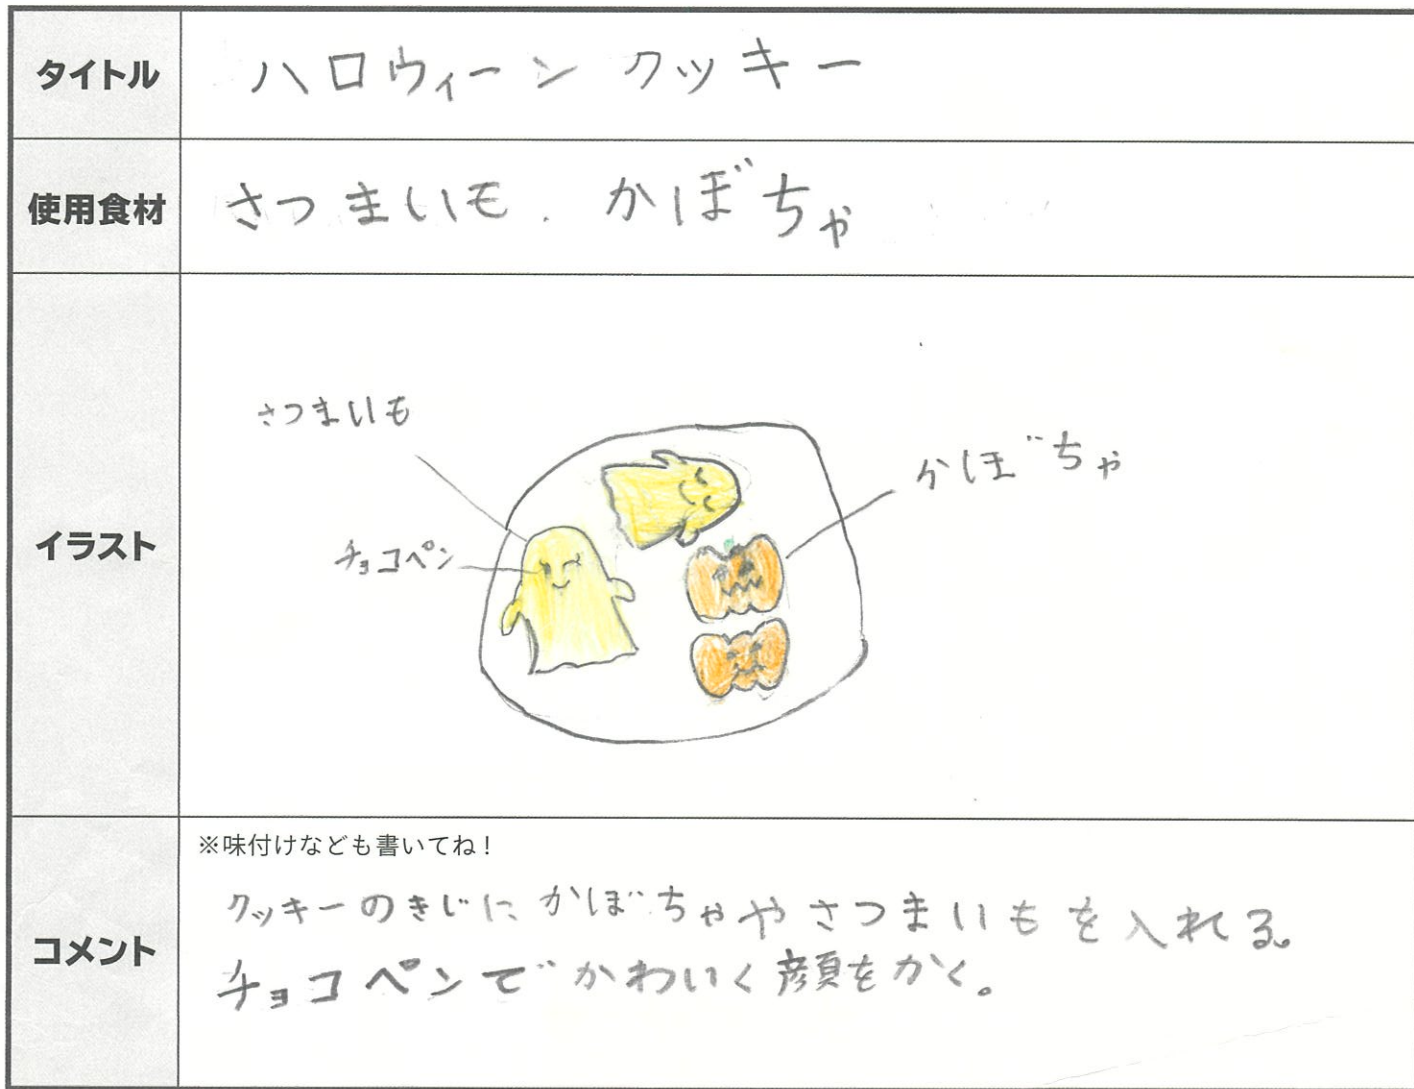 タイトル
ハロウィーン クッキー
使用食材
さつまいも.かぼちゃ
イラスト
さつまいも
かぼちゃ
チョコペン
コメント
※味付けなども書いてね！
クッキーのきじにかぼちゃやさつまいもを入れる。
チョコペンでかわいく顔をかく。